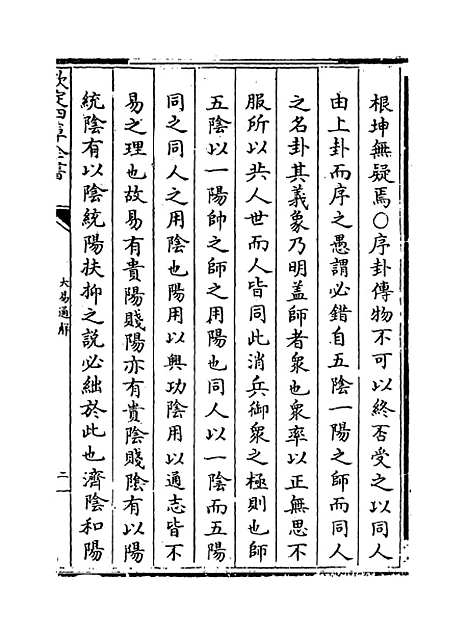 根坤無疑焉○序卦傳物不可以終否受之以同人
由上卦而序之愚謂必錯自五陰一陽之師而同人
之名卦其義象乃明蓋師者衆也衆率以正無思不
服所以共人世而人皆同此消兵御衆之極則也師
五陰以一陽帥之師之用陽也同人以一陰而五陽
同之同人之用陰也陽用以興功陰用以通志皆不
易之理也故易有貴陽賤陽亦有貴陰賤陰有以陽
統陰有以陰統陽扶抑之說必絀於此也濟陰和陽
欽定四庫全書
大易通解